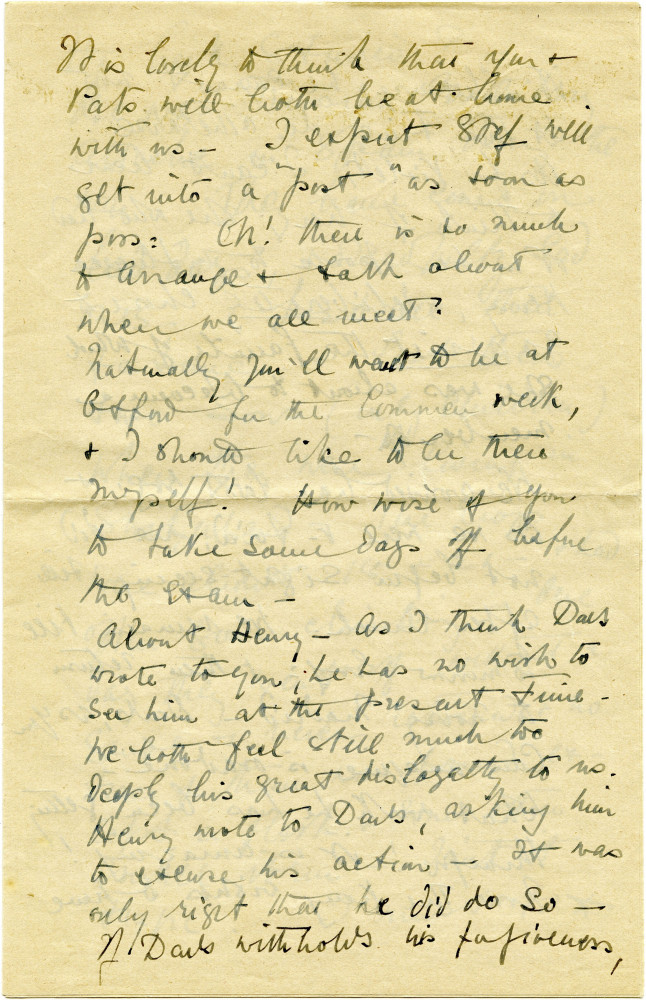 It is lovely to think that you &
Pats will both be at home
with us – I expect Stef will
get into a "post" as soon as
poss: Oh! there is so much
to arrange & talk about
when we all meet!
Naturally you'll want to be at
Oxford for the Commem week,
& I should like to be there
myself! How wise of you
to take some days off before
the exam –
About Henry – As I think Dads
wrote to you, he has no wish to
see him at the present time –
we both feel still much too
deeply his great disloyalty to us.
Henry wrote to Dads, asking him
to excuse his action – It was
only right that he did do so –
If Dads withholds his forgiveness,